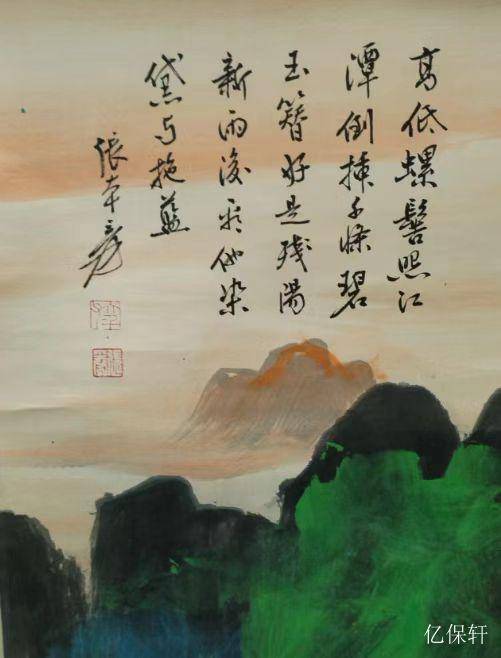 高低螺髻照江
潭倒挿千條碧
玉簪好是残陽
新雨後看他染
黛与拖藍
張大千爰
亿保轩